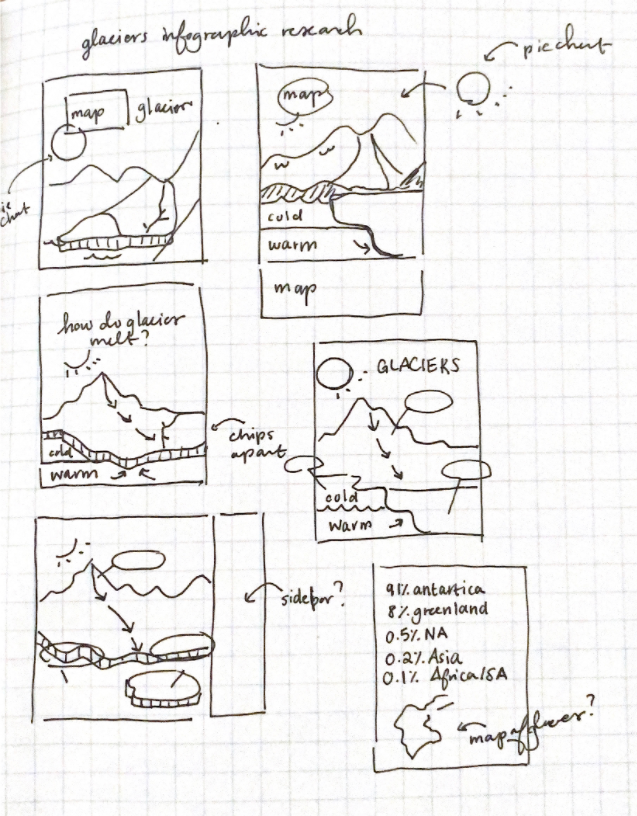 glaciers infographic research
pie chart
map
glacier
map
cold
warm
map
how do glacier
melt?
cold
warm
chips
apart
GLACIERS
cold
warm
sidebar?
91% antartica
8% greenland
0.5% NA
0.2% Asia
0.1% Africa/SA
map of